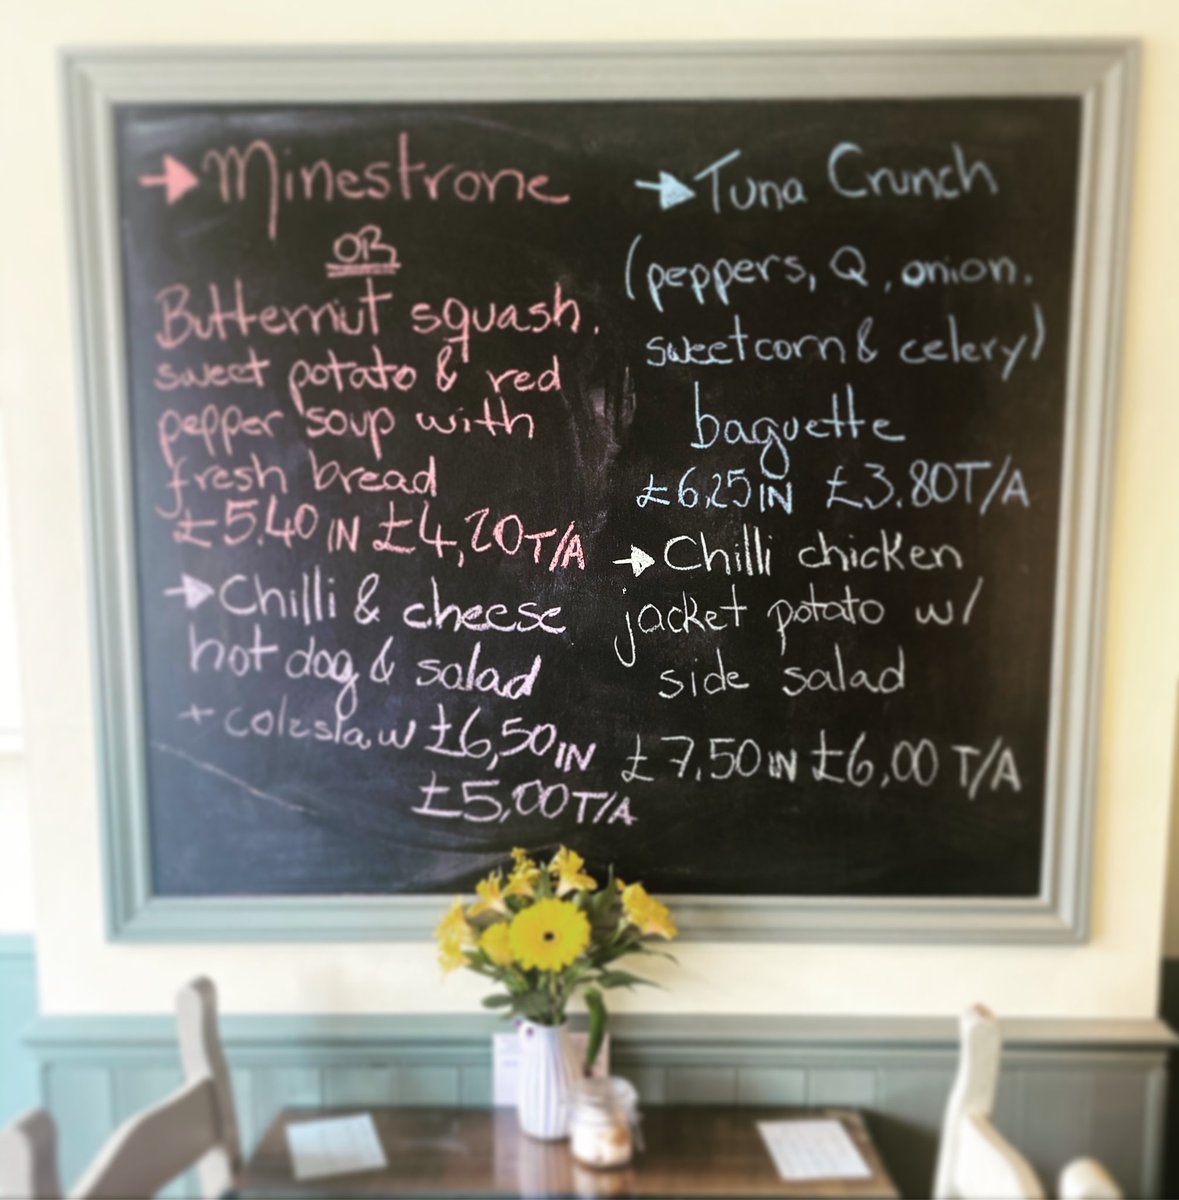 →Minestrone
OR
Butternut squash.
sweet potato & red
pepper soup with
fresh bread
£5.40 IN £4,20 T/A
→Chilli & cheese
hot dog & salad
+ coleslaw £6,50 IN
£5,00 T/A
→Tuna Crunch
(peppers, Q, onion.
sweetcorn & celery)
baguette
£6,25 IN £3.80 T/A
→Chilli chicken
jacket potato w/
side salad
£7,50 IN £6,00 T/A